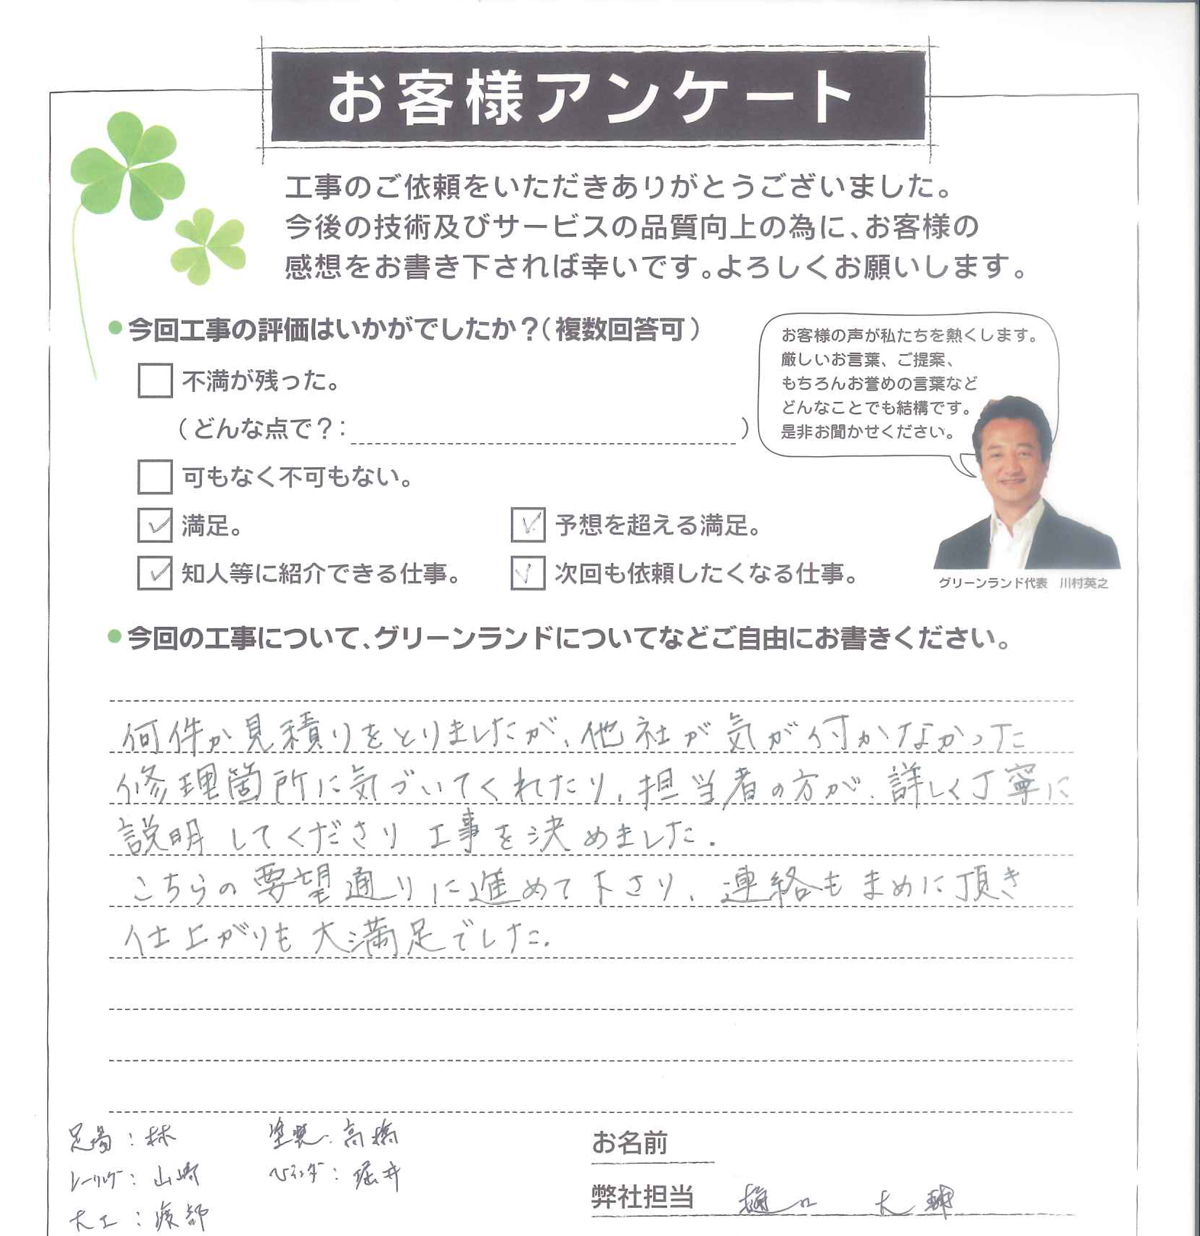 お客様アンケート
工事のご依頼をいただきありがとうございました。
今後の技術及びサービスの品質向上の為に、お客様の
感想をお書き下されば幸いです。よろしくお願いします。
●今回工事の評価はいかがでしたか？（複数回答可）
不満が残った。
（どんな点で？：）
可もなく不可もない。
満足。
予想を超える満足。
知人等に紹介できる仕事。
次回も依頼したくなる仕事。
お客様の声が私たちを熱くします。
厳しいお言葉、ご提案、
もちろんお誉めの言葉など
どんなことでも結構です。
是非お聞かせください。
グリーンランド代表 川村英之
●今回の工事について、グリーンランドについてなどご自由にお書きください。
何件か見積りをとりましたが、他社が気が付かなかった
修理箇所に気づいてくれたり、担当者の方が、詳しく丁寧に
説明してくださり工事を決めました。
こちらの要望通りに進めて下さり、連絡もまめに頂き
仕上がりも大満足でした。
足場：林
塗装：高橋
レーリング：山崎
ベランダ：堀井
大工：渡部
お名前
弊社担当 樋口 大輔